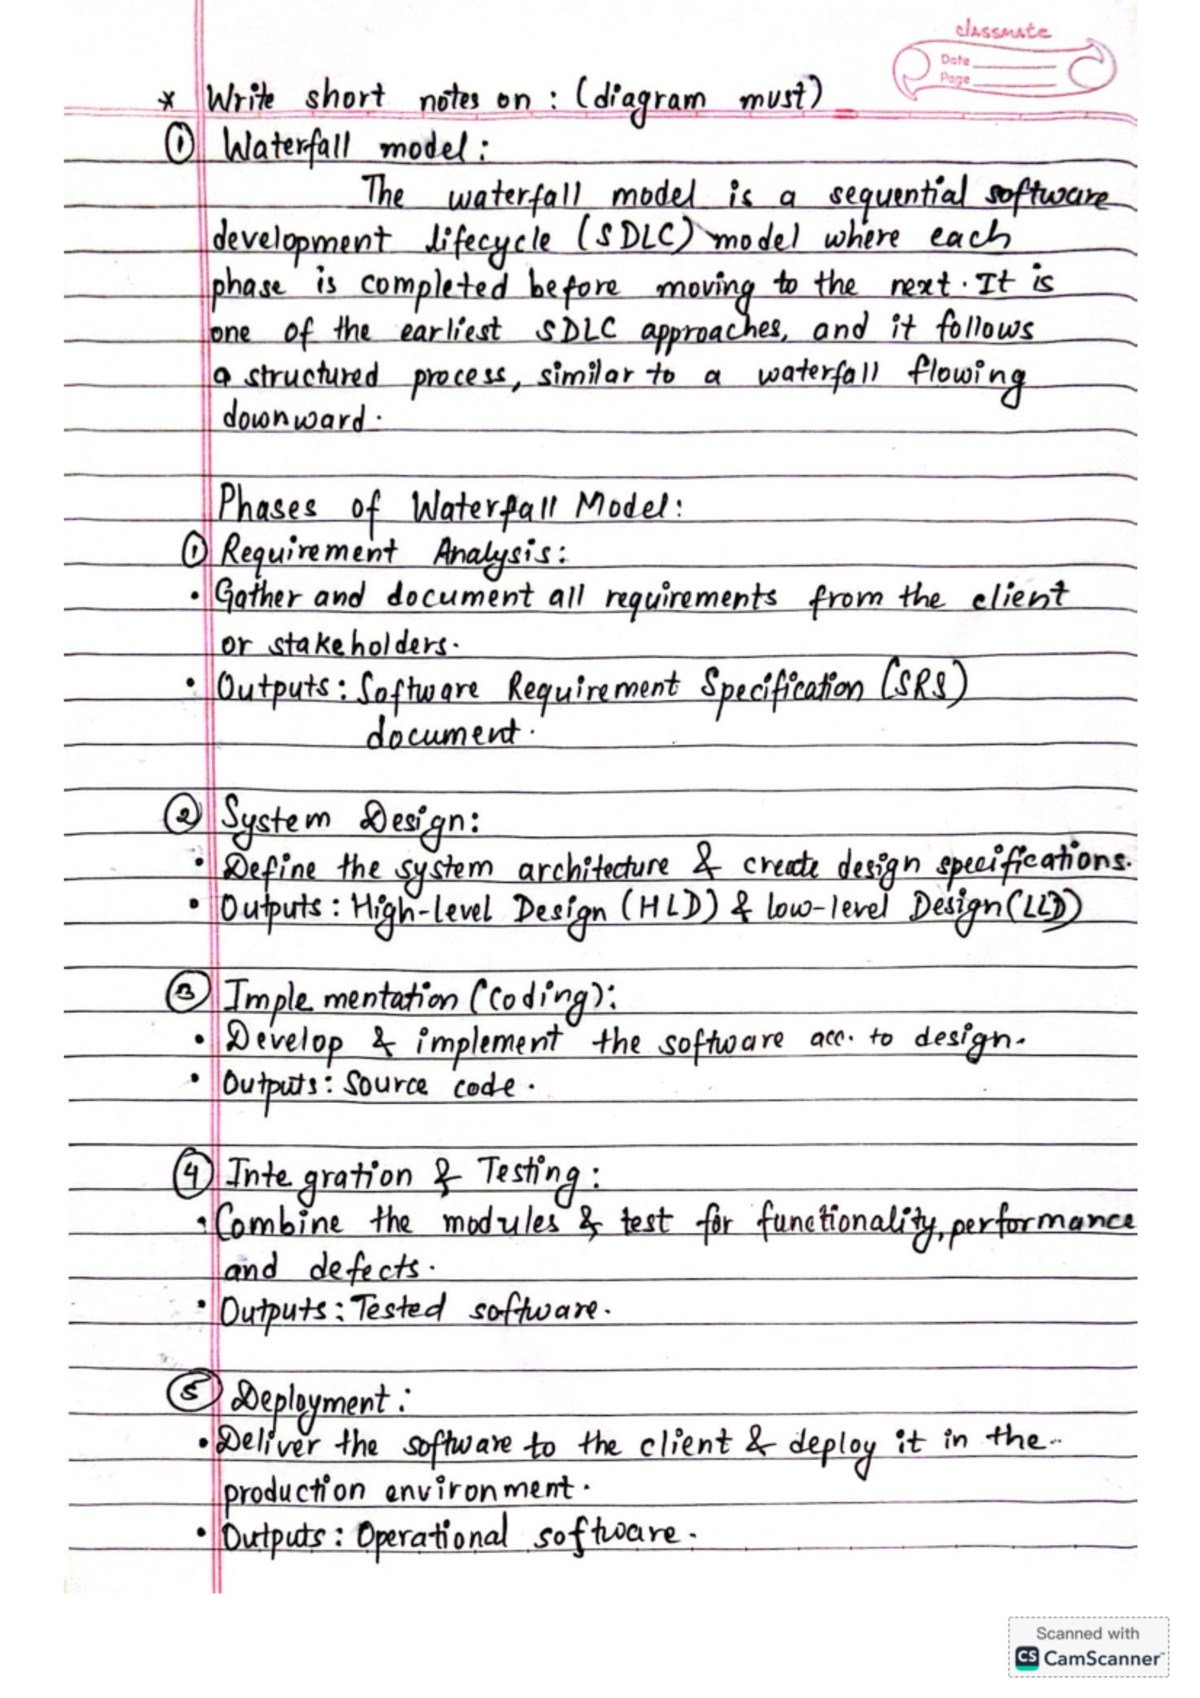 classmate
Date
Page
* Write short notes on : (diagram must)
① Waterfall model :
The waterfall model is a sequential software
development lifecycle (SDLC) model where each
phase is completed before moving to the next. It is
one of the earliest SDLC approaches, and it follows
a structured process, similar to a waterfall flowing
downward.
Phases of Waterfall Model :
① Requirement Analysis :
• Gather and document all requirements from the client
or stakeholders.
• Outputs : Software Requirement Specification (SRS)
document.
② System Design :
• Define the system architecture & create design specifications.
• Outputs : High-level Design (HLD) & low-level Design (LLD)
③ Implementation (coding) :
• Develop & implement the software acc. to design.
• Outputs : Source code.
④ Integration & Testing :
• Combine the modules & test for functionality, performance
and defects.
• Outputs : Tested software.
⑤ Deployment :
• Deliver the software to the client & deploy it in the
production environment.
• Outputs : Operational software.
Scanned with
CS CamScanner